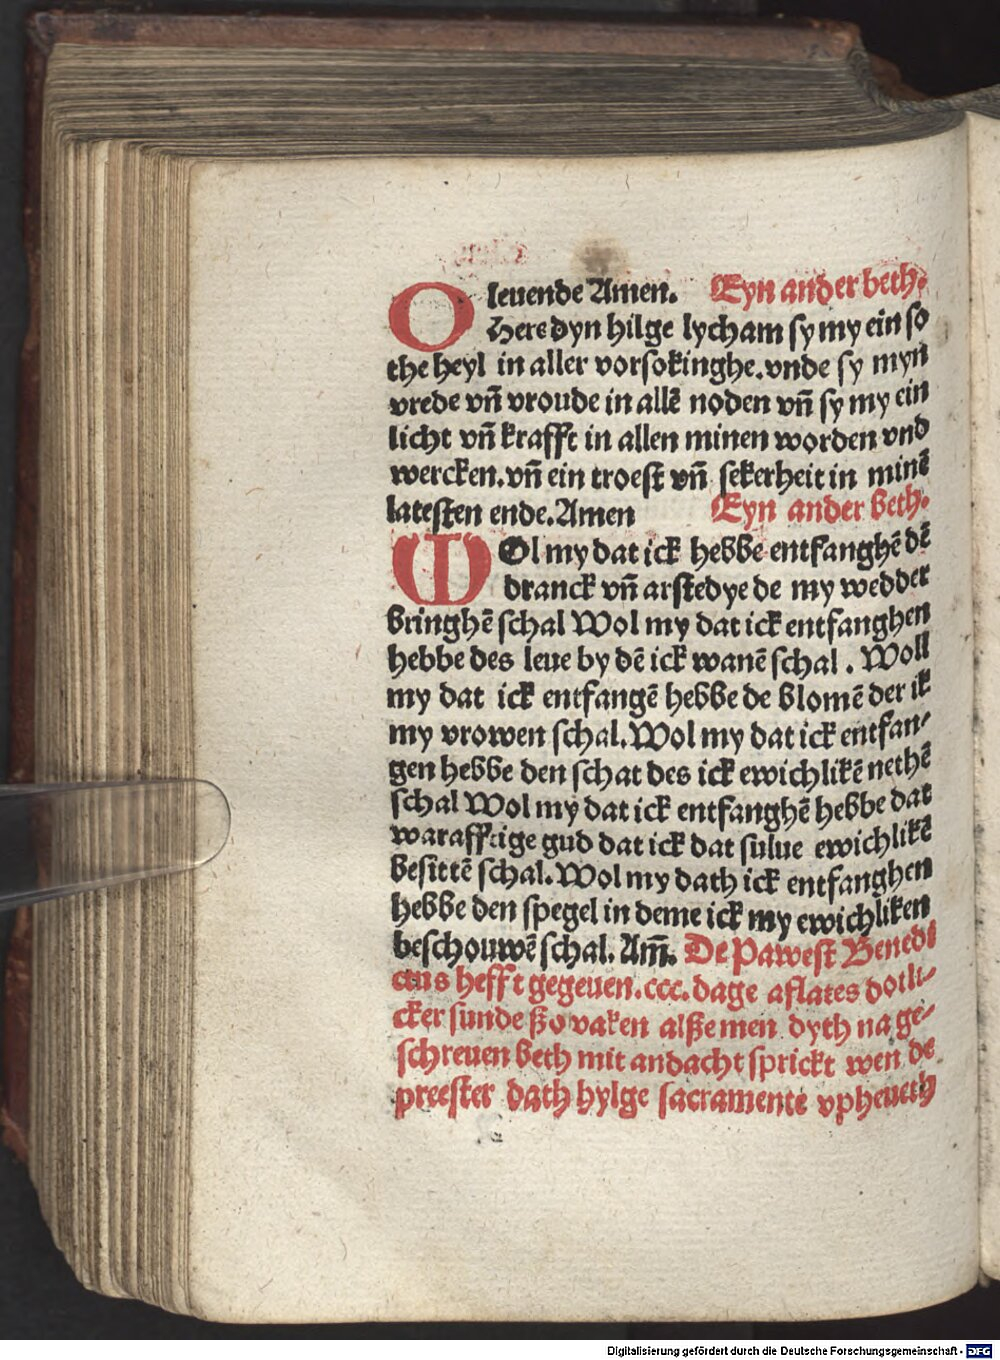 leuende Amen. Eyn ander beth.
O Here dyn hilge lycham sy my ein so
the heyl in aller vorsokinghe. vnde sy myn
vrede vn̄ vroude in allē noden vn̄ sy my ein
licht vn̄ krafft in allen minen worden vnd
wercken. vn̄ ein troest vn̄ sekerheit in minē
latesten ende. Amen Eyn ander beth.
WOl my dat ick hebbe entfanghē dē
dranck vn̄ arstedye de my wedder
bringhē schal Wol my dat ick entfanghen
hebbe des leue by dē ick wanē schal. Woll
my dat ick entfangē hebbe de blomē der ik
my vrowen schal. Wol my dat ick entfan-
gen hebbe den schat des ick ewichlikē nethē
schal Wol my dat ick entfanghē hebbe dat
warafftige gud dat ick dat sulue ewichlikē
besittē schal. Wol my dath ick entfanghen
hebbe den spegel in deme ick my ewichliken
beschouwē schal. Am̄. De Pawest Benedi
ctus hefft gegeuen. ccc. dage aflates dotli-
cker sunde ßo vaken alße men dyth na ge-
schreuen beth mit andacht sprickt wen de
preester dath hylge sacramente vpheueth
Digitalisierung gefördert durch die Deutsche Forschungsgemeinschaft - DFG